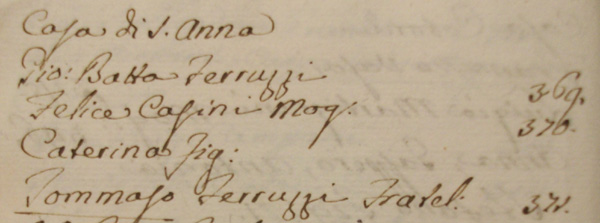 Casa di S. Anna
Gio: Batta Ferruzzi 369.
Felice Casini Mog: 370.
Caterina Fig:
Tommaso Ferruzzi Fratel: 371.